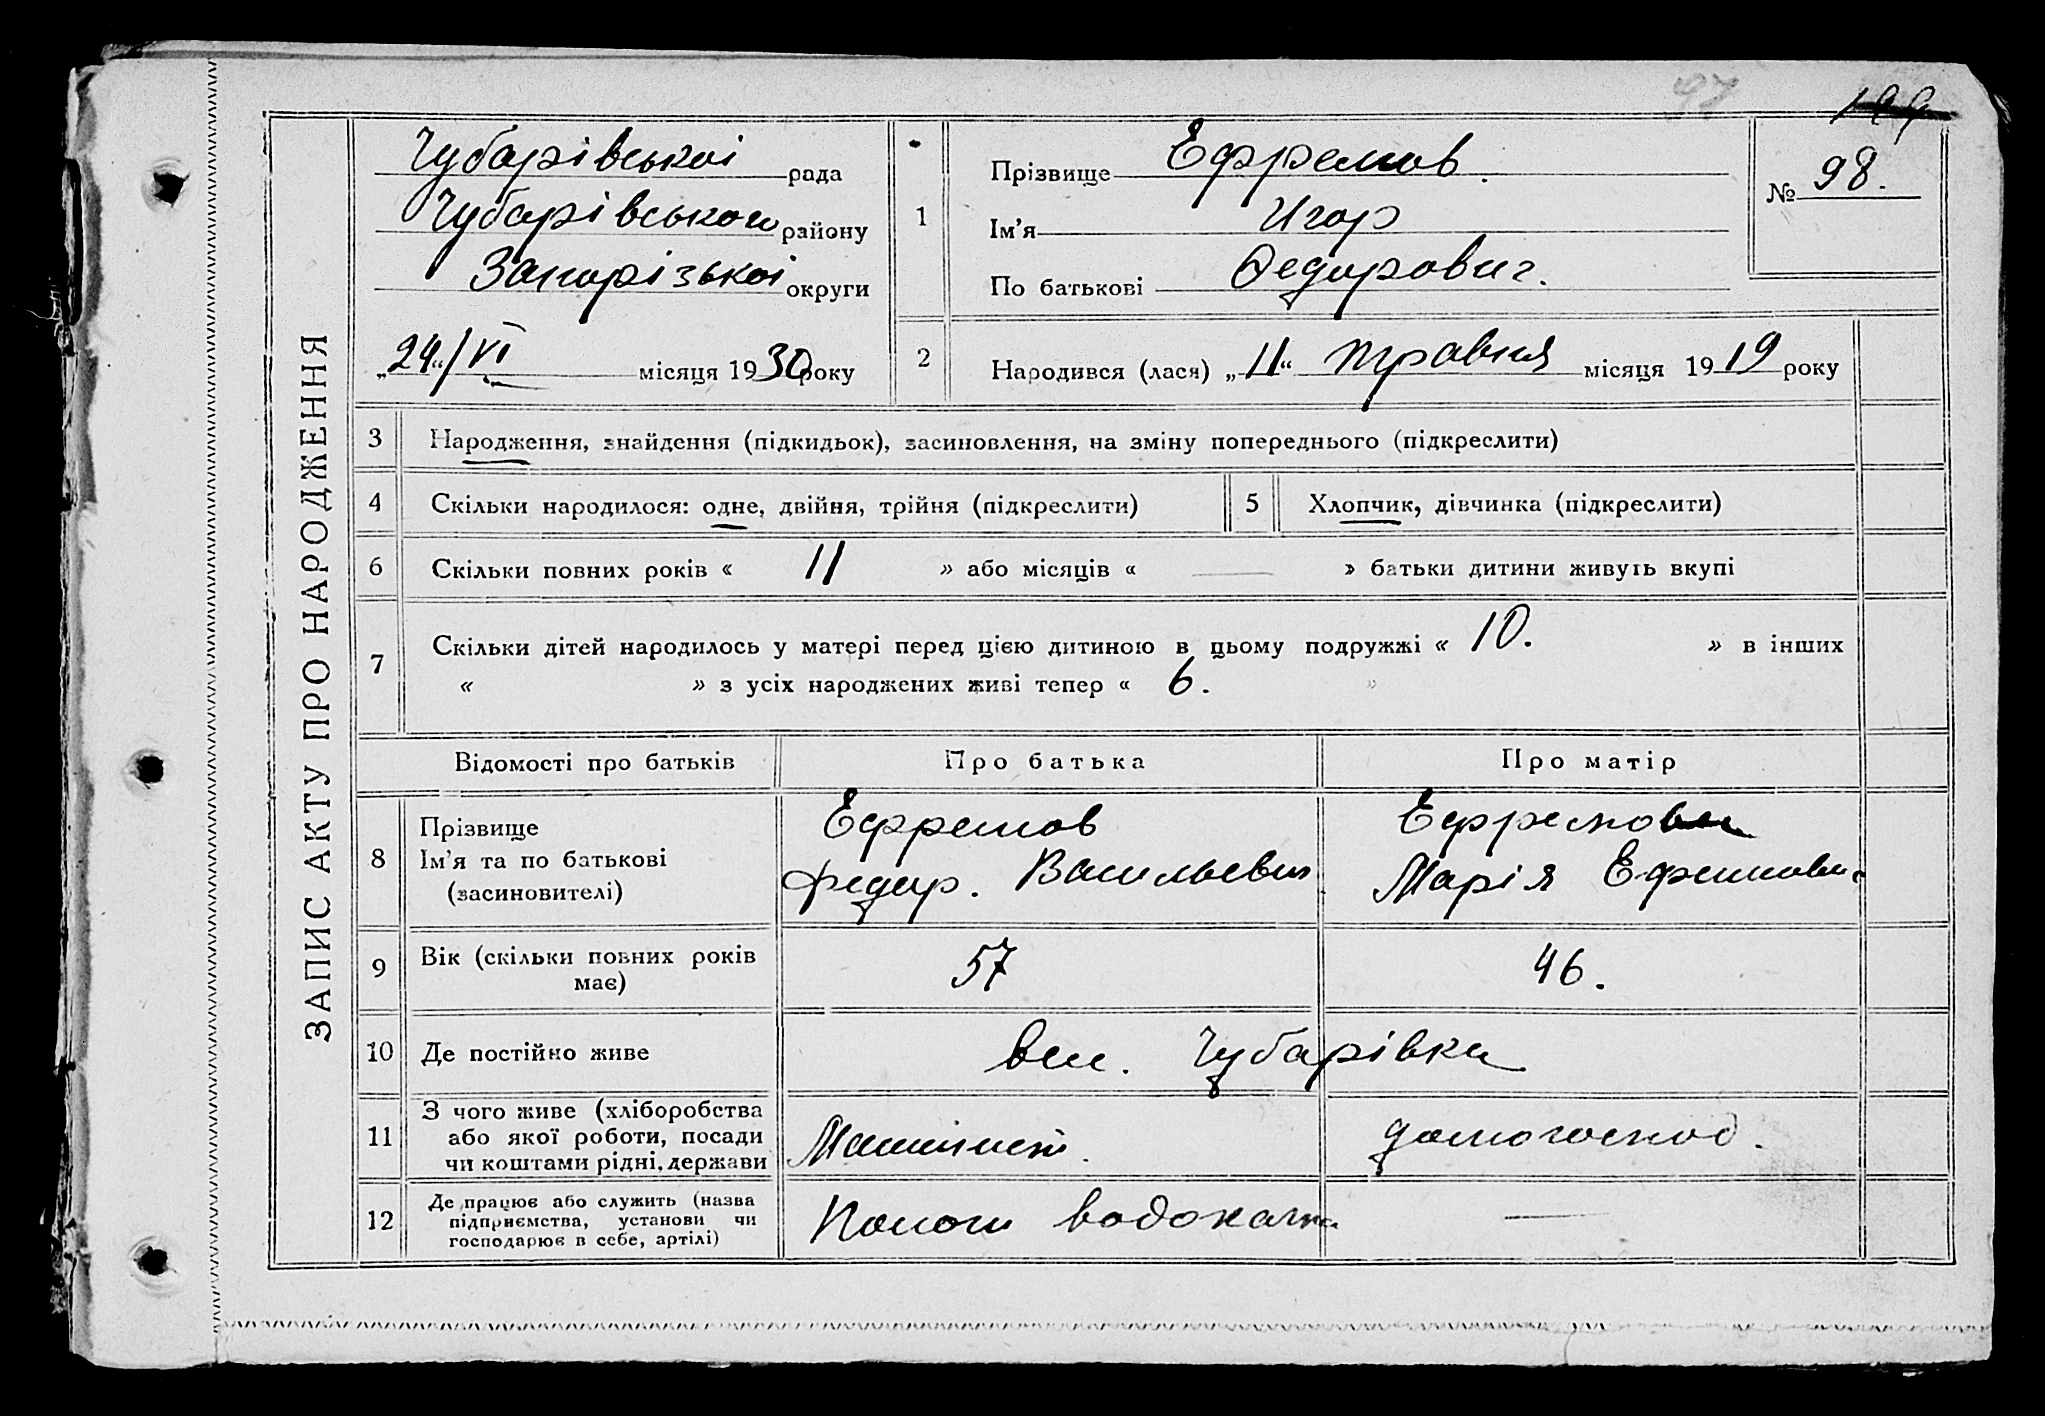 97
199
ЗАПИС АКТУ ПРО НАРОДЖЕННЯ
Чубарівської рада
Чубарівського району
Запорізької округи
„24“/VI місяця 1930 року
1
Прізвище Ефремов.
Ім'я Игор
По батькові Федорович.
№ 98.
2 Народився (лася) „11“ травня місяця 1919 року
3 Народження, знайдення (підкидьок), засиновлення, на зміну попереднього (підкреслити)
4 Скільки народилося: одне, двійня, трійня (підкреслити) 5 Хлопчик, дівчинка (підкреслити)
6 Скільки повних років « 11 » або місяців « — » батьки дитини живуть вкупі
7 Скільки дітей народилось у матері перед цією дитиною в цьому подружжі « 10. » в інших
« » з усіх народжених живі тепер « 6. »
Відомості про батьків Про батька Про матір
8 Прізвище Ефремов Ефремова
Ім'я та по батькові Федор. Васильевич Марія
(засиновителі)
9 Вік (скільки повних років 57 46.
має)
10 Де постійно живе вел. Чубарівка
11 З чого живе (хліборобства
або якої роботи, посади Машиніст. домогоспод.
чи коштами рідні, держави
12 Де працює або служить (назва
підприємства, установи чи Пологи водокачка —
господарює в себе, артілі)